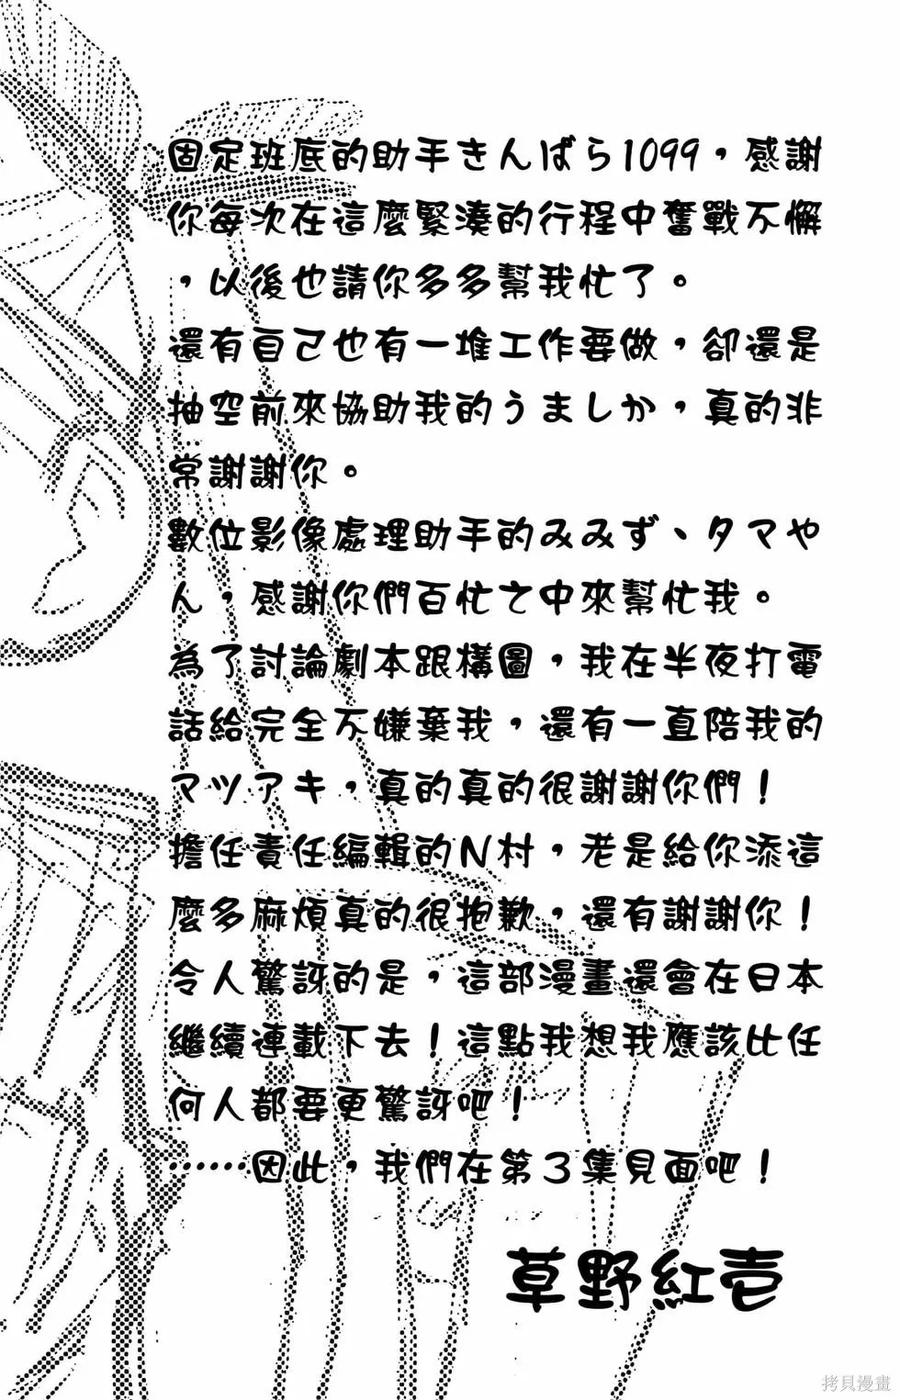 固定班底的助手きんばら1099，感謝
你每次在這麼緊湊的行程中奮戰不懈
，以後也請你多多幫我忙了。
還有自己也有一堆工作要做，卻還是
抽空前來協助我的うましか，真的非
常謝謝你。
數位影像處理助手的みみず、タマや
ん，感謝你們百忙之中來幫忙我。
為了討論劇本跟構圖，我在半夜打電
話給完全不嫌棄我，還有一直陪我的
マツアキ，真的真的很謝謝你們！
擔任責任編輯的N村，老是給你添這
麼多麻煩真的很抱歉，還有謝謝你！
令人驚訝的是，這部漫畫還會在日本
繼續連載下去！這點我想我應該比任
何人都要更驚訝吧！
……因此，我們在第3集見面吧！
草野紅壱
拷貝漫畫